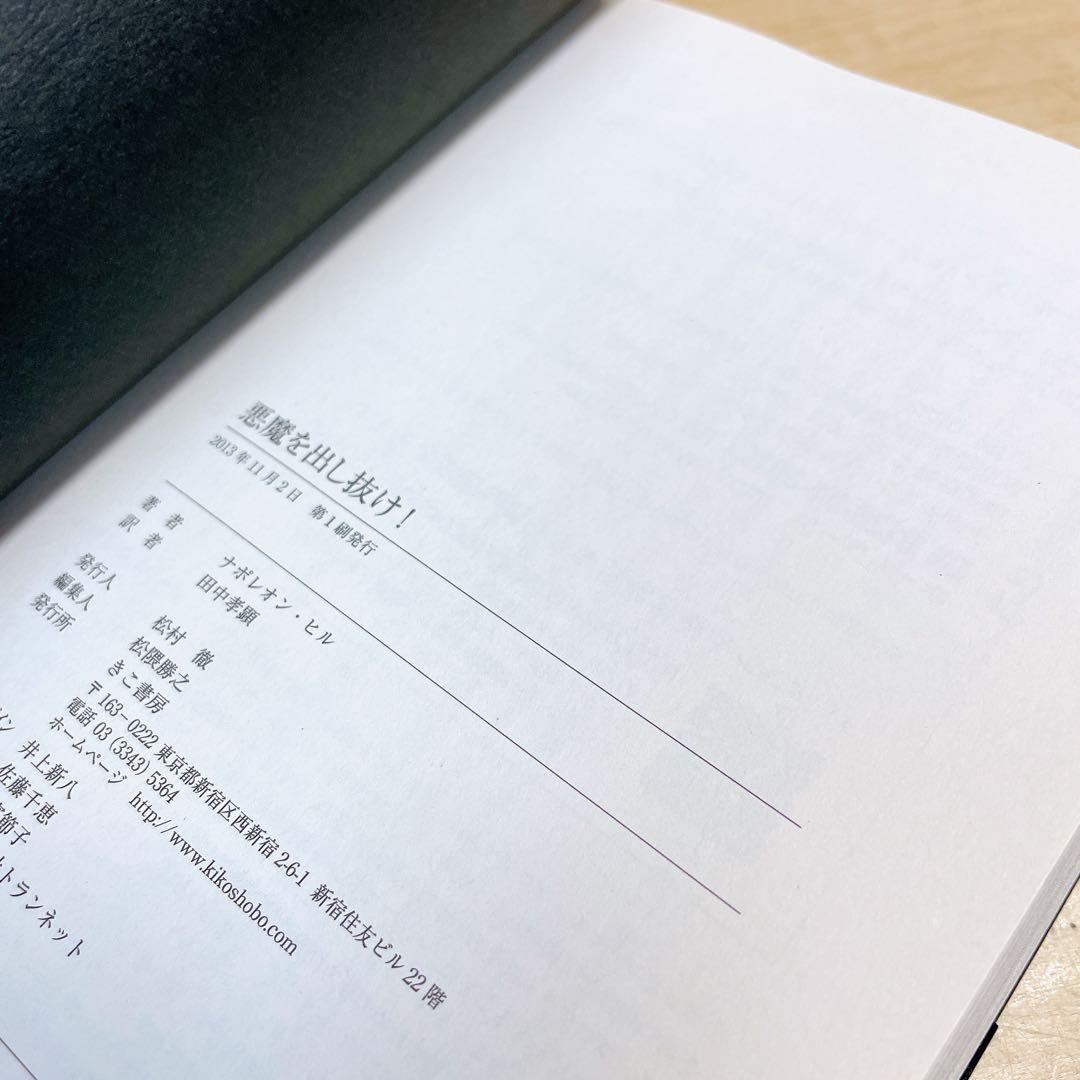 悪魔を出し抜け!
2013年11月2日　第1刷発行
著　者　ナポレオン・ヒル
訳　者　田中孝顕
発行人　松村　徹
編集人　松隈勝之
発行所　きこ書房
〒163-0222 東京都新宿区西新宿2-6-1 新宿住友ビル22階
電話 03 (3343) 5364
ホームページ　http://www.kikoshobo.com
イン　井上新八
佐藤千恵
節子
トランネット